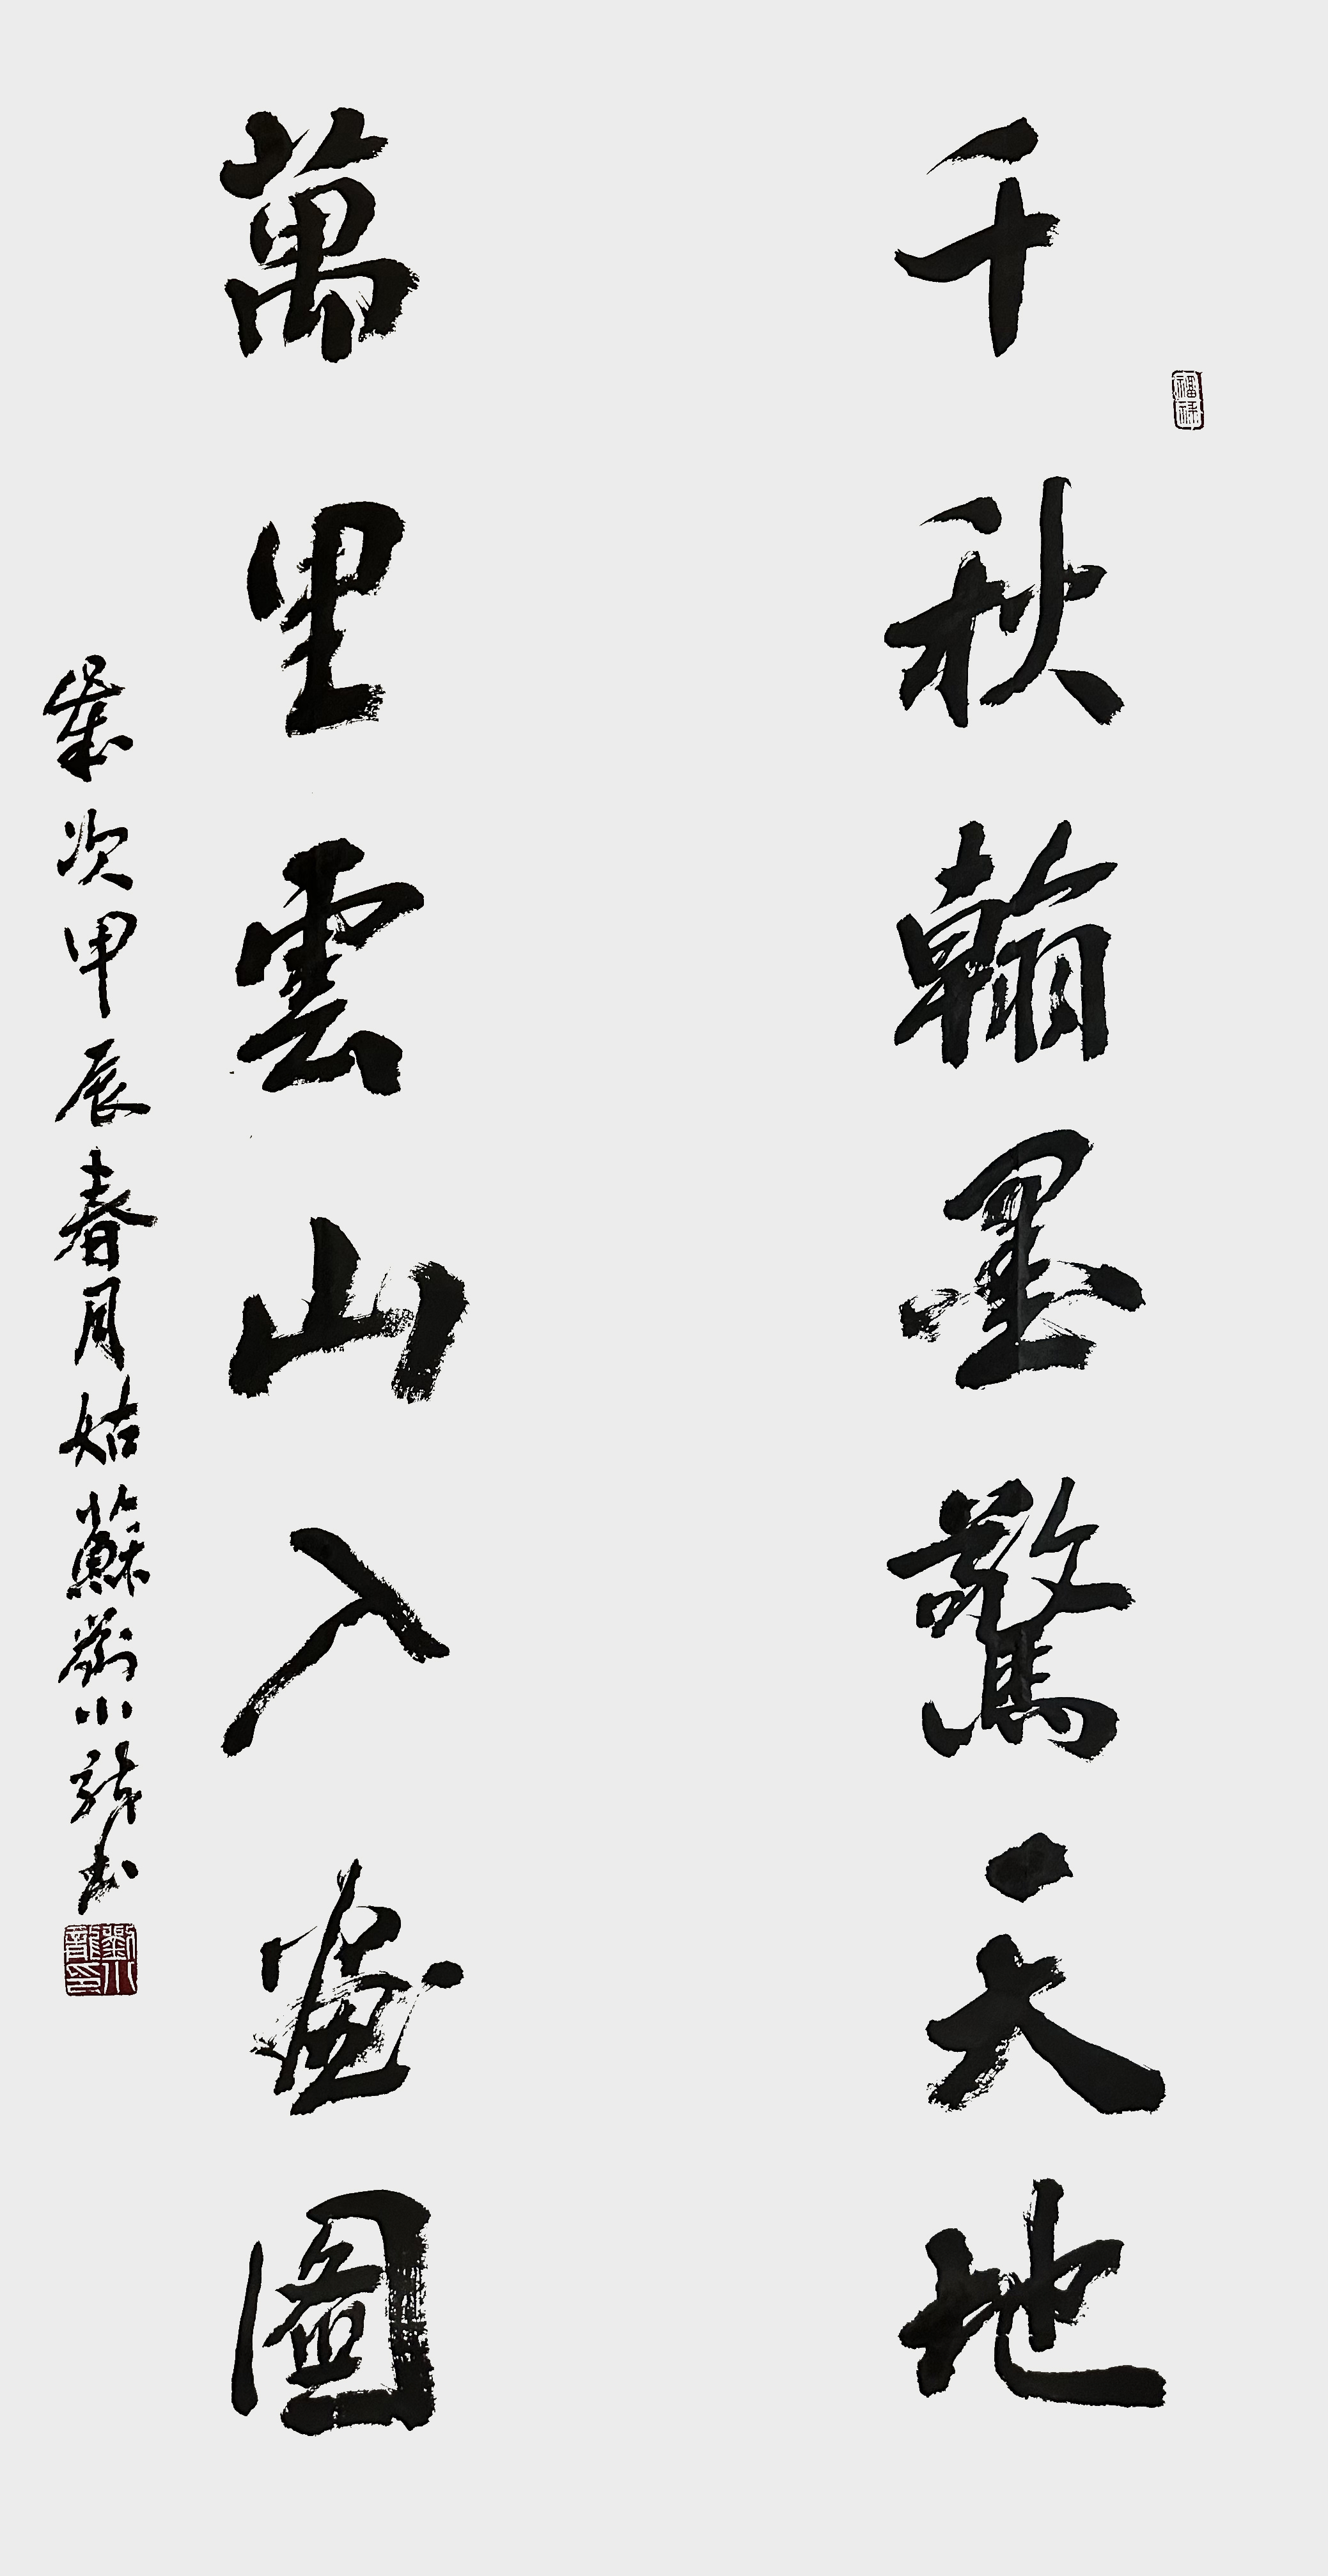 千秋翰墨驚天地
萬里雲山入畫圖
歲次甲辰春月姑蘇劉小龍書
劉小龍印